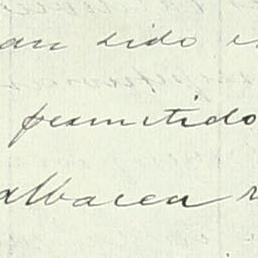 an sido e
permitido
albacea